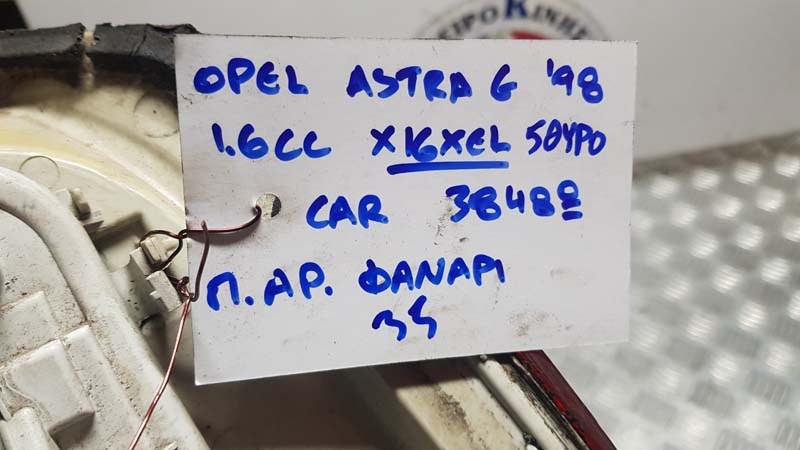 ΕΙΡΟΚΙΝΗΣ
OPEL ASTRA G '98
1.6CC X16XEL 5ΘΥΡΟ
CAR 38488
Π.ΑΡ. ΦΑΝΑΡΙ
35